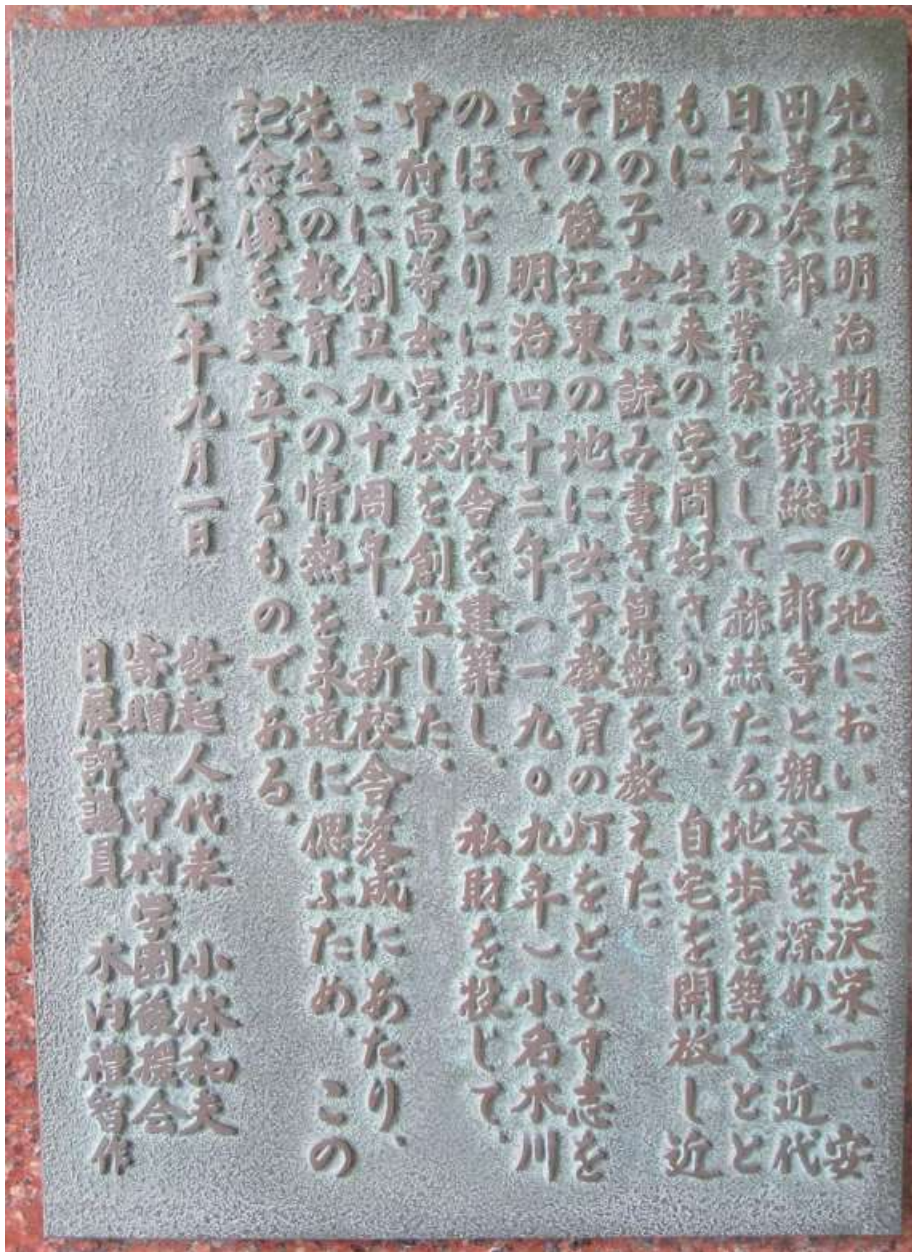 先生は明治期深川の地において渋沢栄一、安
田善次郎、浅野総一郎等と親交を深め、近代
日本の実業家として赫誌たる地歩を築くとと
もに、生来の学問好きから、自宅を開放し近
隣の子女に読み書き算盤を教えた。
その後江東の地に女子教育の灯をともす志を
立て、明治四十二年(一九〇九年)小名木川
のほとりに新校舎を建築し、私財を投じて、
中村高等女学校を創立した。
ここに創立九十周年、新校舎落成にあたり、
先生の教育への情熱を永遠に偲ぶため、この
記念像を建立するものである。
平成十一年九月一日
発起人代表 小林和夫
寄贈 中村学園後援会
日展評議員 木内禮智作